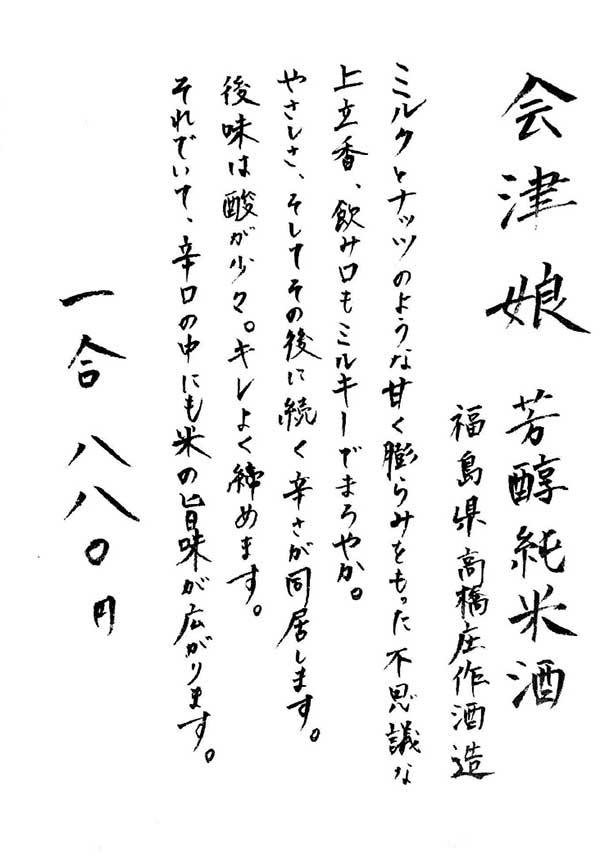 会津娘 芳醇純米酒
福島県高橋庄作酒造
ミルクとナッツのような甘く膨らみをもった不思議な
上立香、飲み口もミルキーでまろやか。
やさしさ、そしてその後に続く辛さが同居します。
後味は酸が少々。キレよく締めます。
それでいて、辛口の中にも米の旨味が広がります。
一合 八八〇円